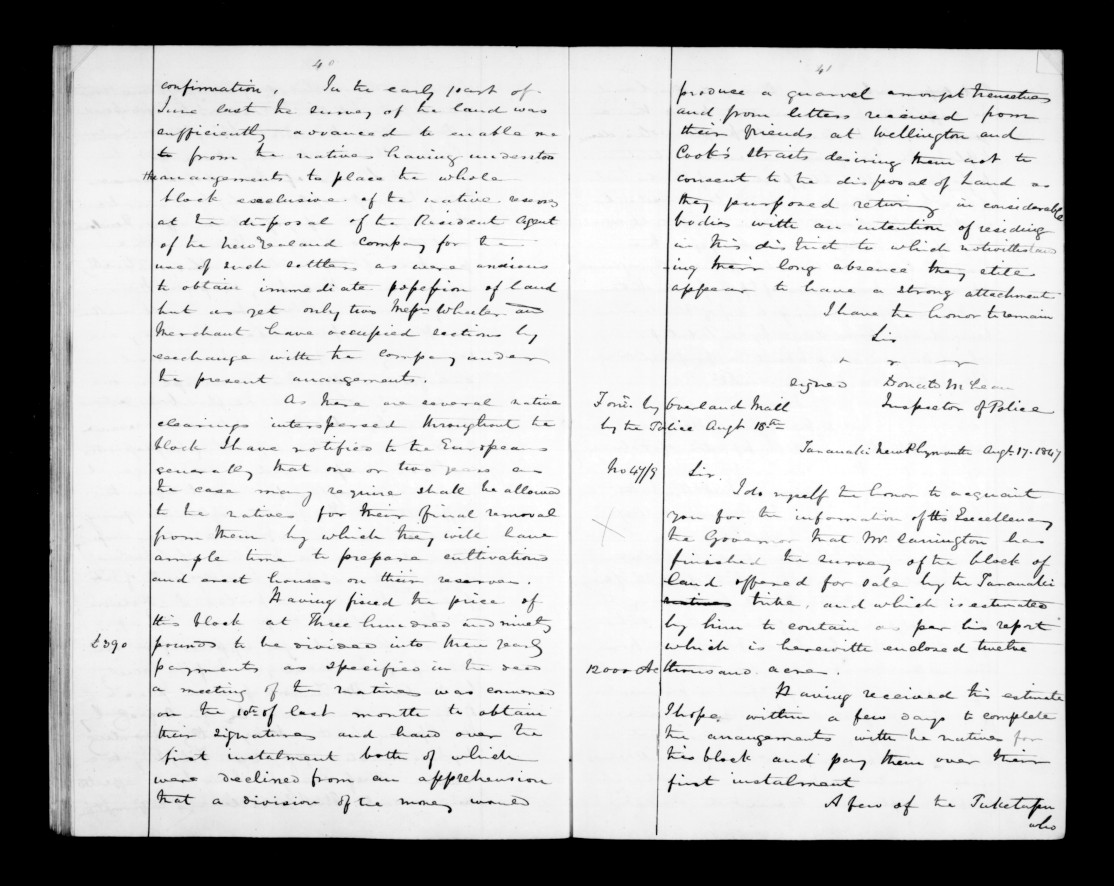 40
confirmation. In the early part of
June last the survey of the land was
sufficiently advanced to enable me
to from the natives having understood
the arrangements to place the whole
block exclusive of the native reserves
at the disposal of the Resident Agent
of the New Zealand Company for the
use of such settlers as were anxious
to obtain immediate possession of land
but as yet only two Messrs Wheeler and
Merchant have occupied sections by
exchange with the Company under
the present arrangements.
As there are several native
clearings interspersed throughout the
block I have notified to the Europeans
generally that one or two years as
the case may require shall be allowed
to the natives for their final removal
from them by which they will have
ample time to prepare cultivations
and erect houses on their reserves.
Having fixed the price of
this block at Three hundred and ninety
£390 pounds to be divided into three yearly
payments as specified in the deed
a meeting of the natives was convened
on the 10th of last month to obtain
their signatures and hand over the
first instalment both of which
were declined from an apprehension
that a division of the money would
41
produce a quarrel amongst themselves
and from letters received from
their friends at Wellington and
Cook's Straits desiring them not to
consent to the disposal of land as
they purposed returning in considerable
bodies with an intention of residing
in this district to which notwithstand
ing their long absence they still
appear to have a strong attachment
I have the honor to remain
Sir
signed Donald McLean
Inspector of Police
Forwd. by Overland Mail
by the Police Augt 18th
Taranaki New Plymouth Augt. 17. 1847
No 47/9 Sir
I do myself the honor to acquaint
you for the information of His Excellency
the Governor that Mr. Carrington has
finished the survey of the block of
land offered for sale by the Taranaki
natives tribe, and which is estimated
by him to contain as per his report
which is herewith enclosed twelve
12000 Ac thousand acres.
Having received this estimate
I hope within a few days to complete
the arrangements with the natives for
this block and pay them over their
first instalment
A few of the Puketapu
who